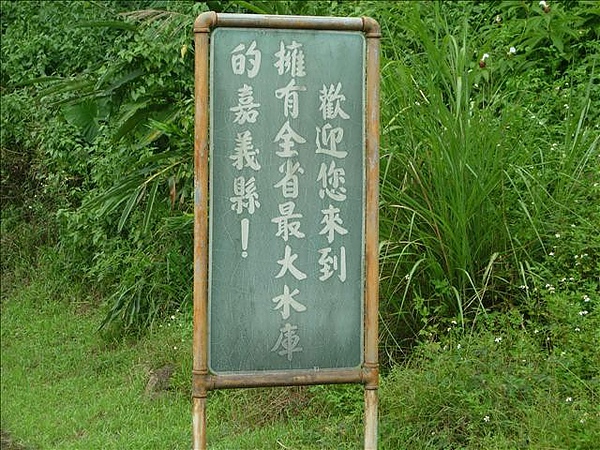 歡迎您來到
擁有全省最大水庫
的嘉義縣！